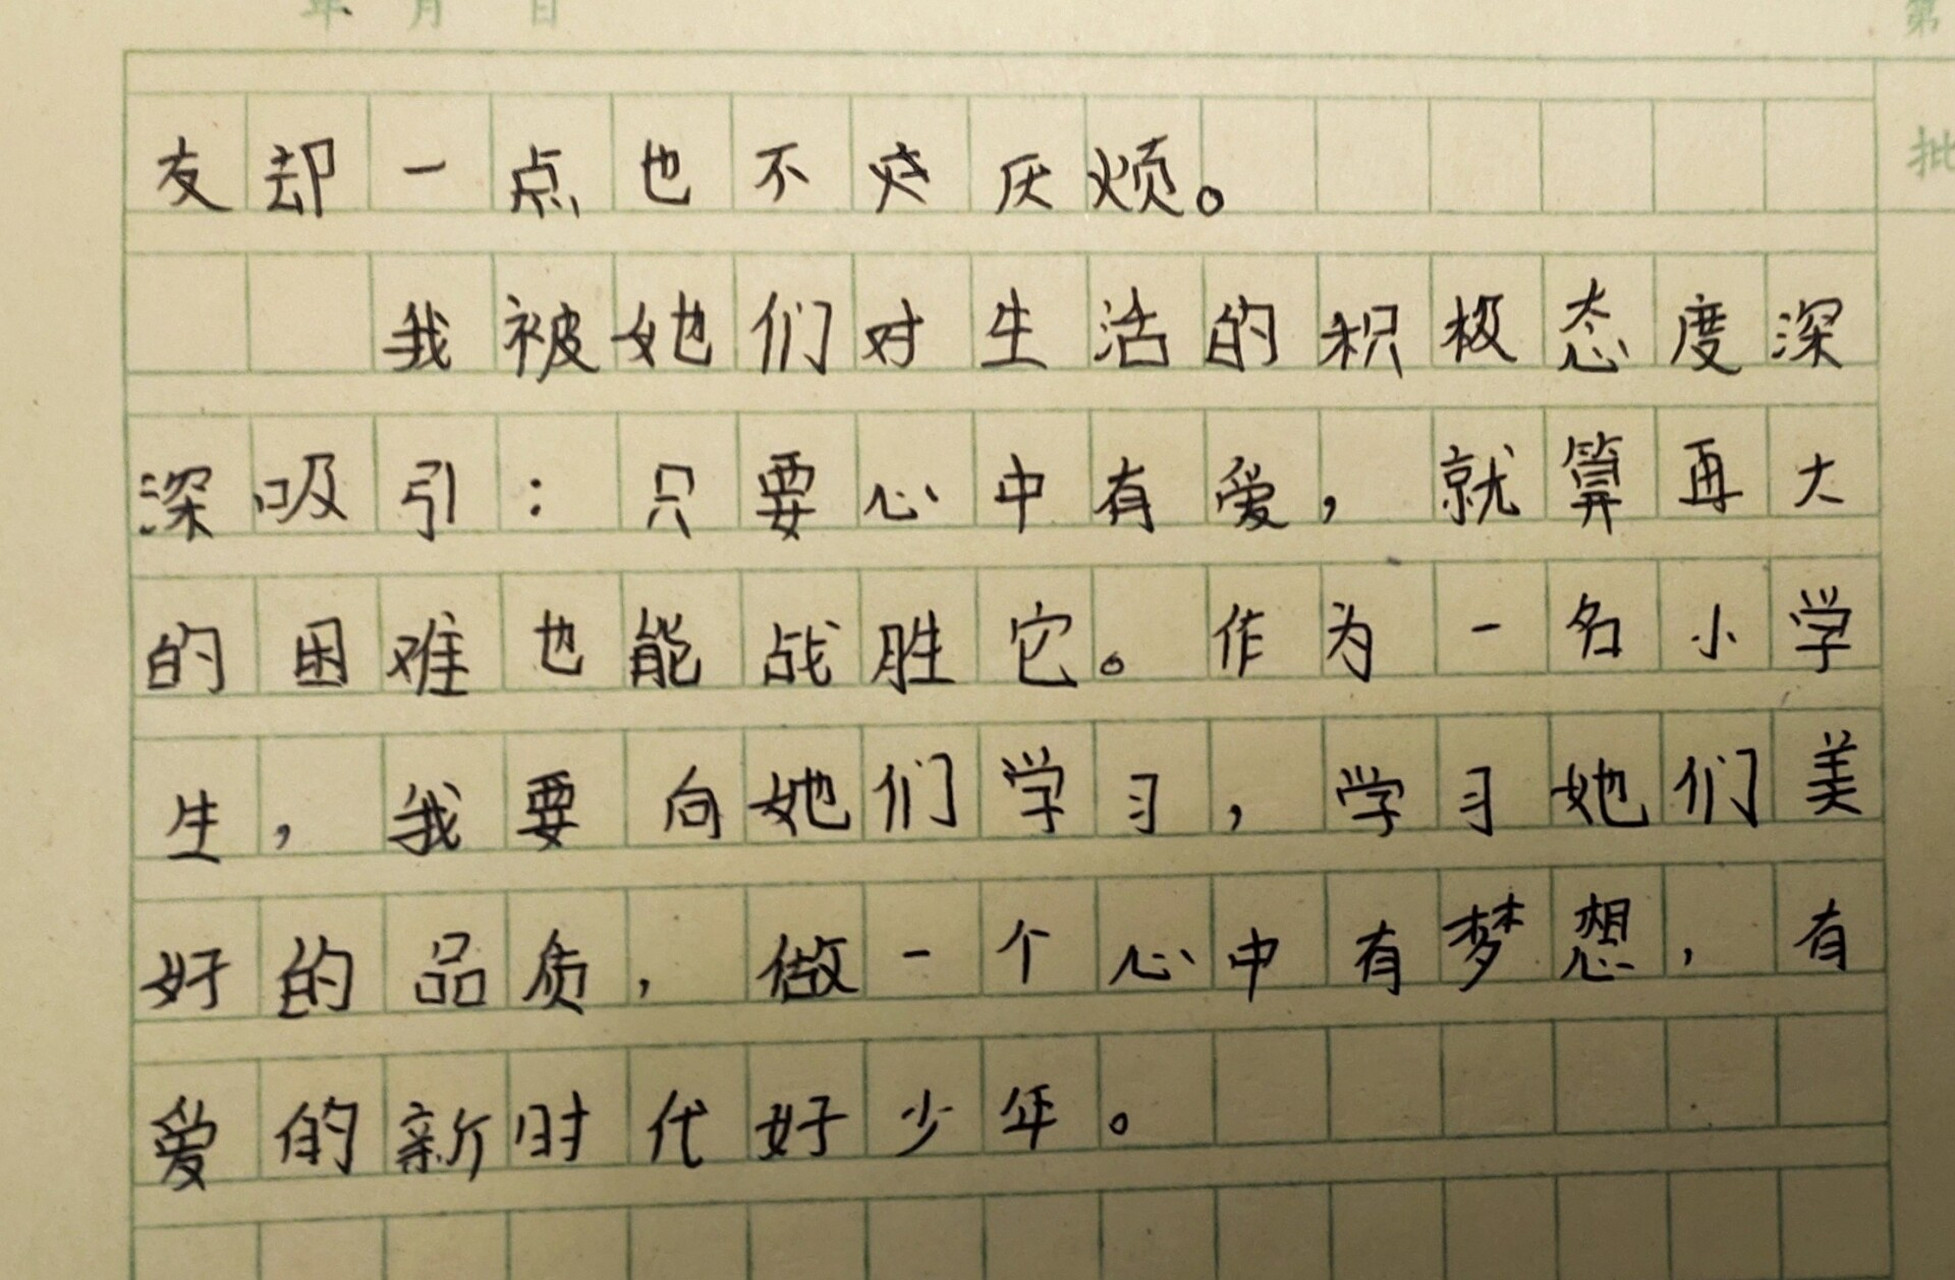 年 月 日
第
批
友却一点也不厌烦。
我被她们对生活的积极态度深
深吸引：只要心中有爱，就算再大
的困难也能战胜它。作为一名小学
生，我要向她们学习，学习她们美
好的品质，做一个心中有梦想，有
爱的新时代好少年。